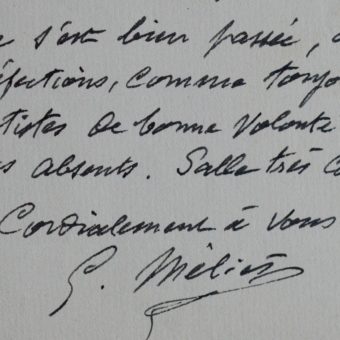 s'est bien passée,
comme toujo
tistes de bonne volonté
s absents. Salle très c
Cordialement à vous
G. Méliès